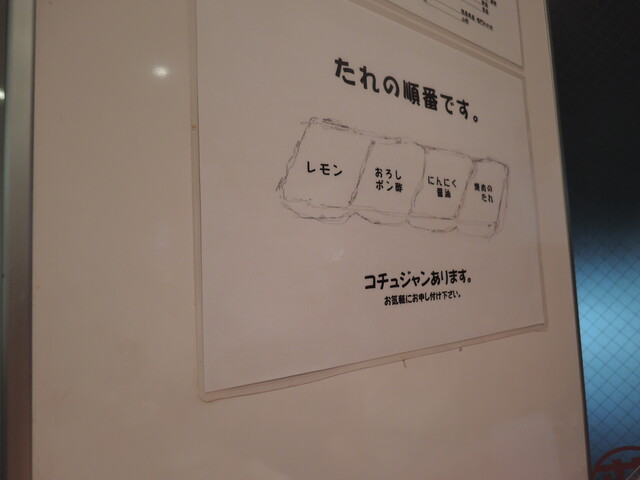 たれの順番です。
レモン
おろし
ポン酢
にんにく
醤油
焼肉の
たれ
コチュジャンあります。
お気軽にお申し付け下さい。